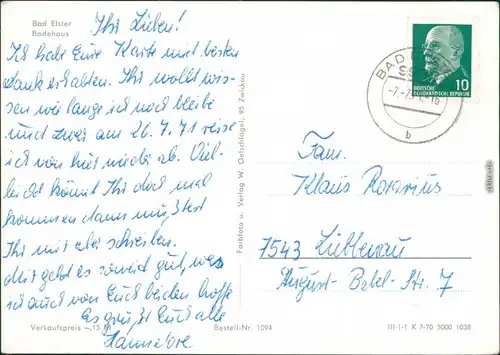 Bad Elster
Badehaus
Ihr Lieben!
Ich habe Eure Karte mit besten
Dank erhalten. Ihr wollt wis-
sen wie lange ich noch bleibe
und zwar am 26.7.71 reise
ich von hier wieder ab. Viel-
leicht könnt Ihr doch mal
kommen dann müßtet
Ihr mir aber schreiben.
Mir geht es soweit gut, was
ich auch von Euch beiden hoffe
Es grüßt Euch alle
Hannelore
Verkaufspreis –,15 M
Bestell-Nr. 1094
III-1-1 K 7-70 5000 1038
Farbfoto u. Verlag W. Oelschlägel, 95 Zwickau
BAD
-7.-7.
b
10
DEUTSCHE
DEMOKRATISCHE REPUBLIK
Fam.
Klaus
7543 Lübbenau
August-Bebel-Str. 7